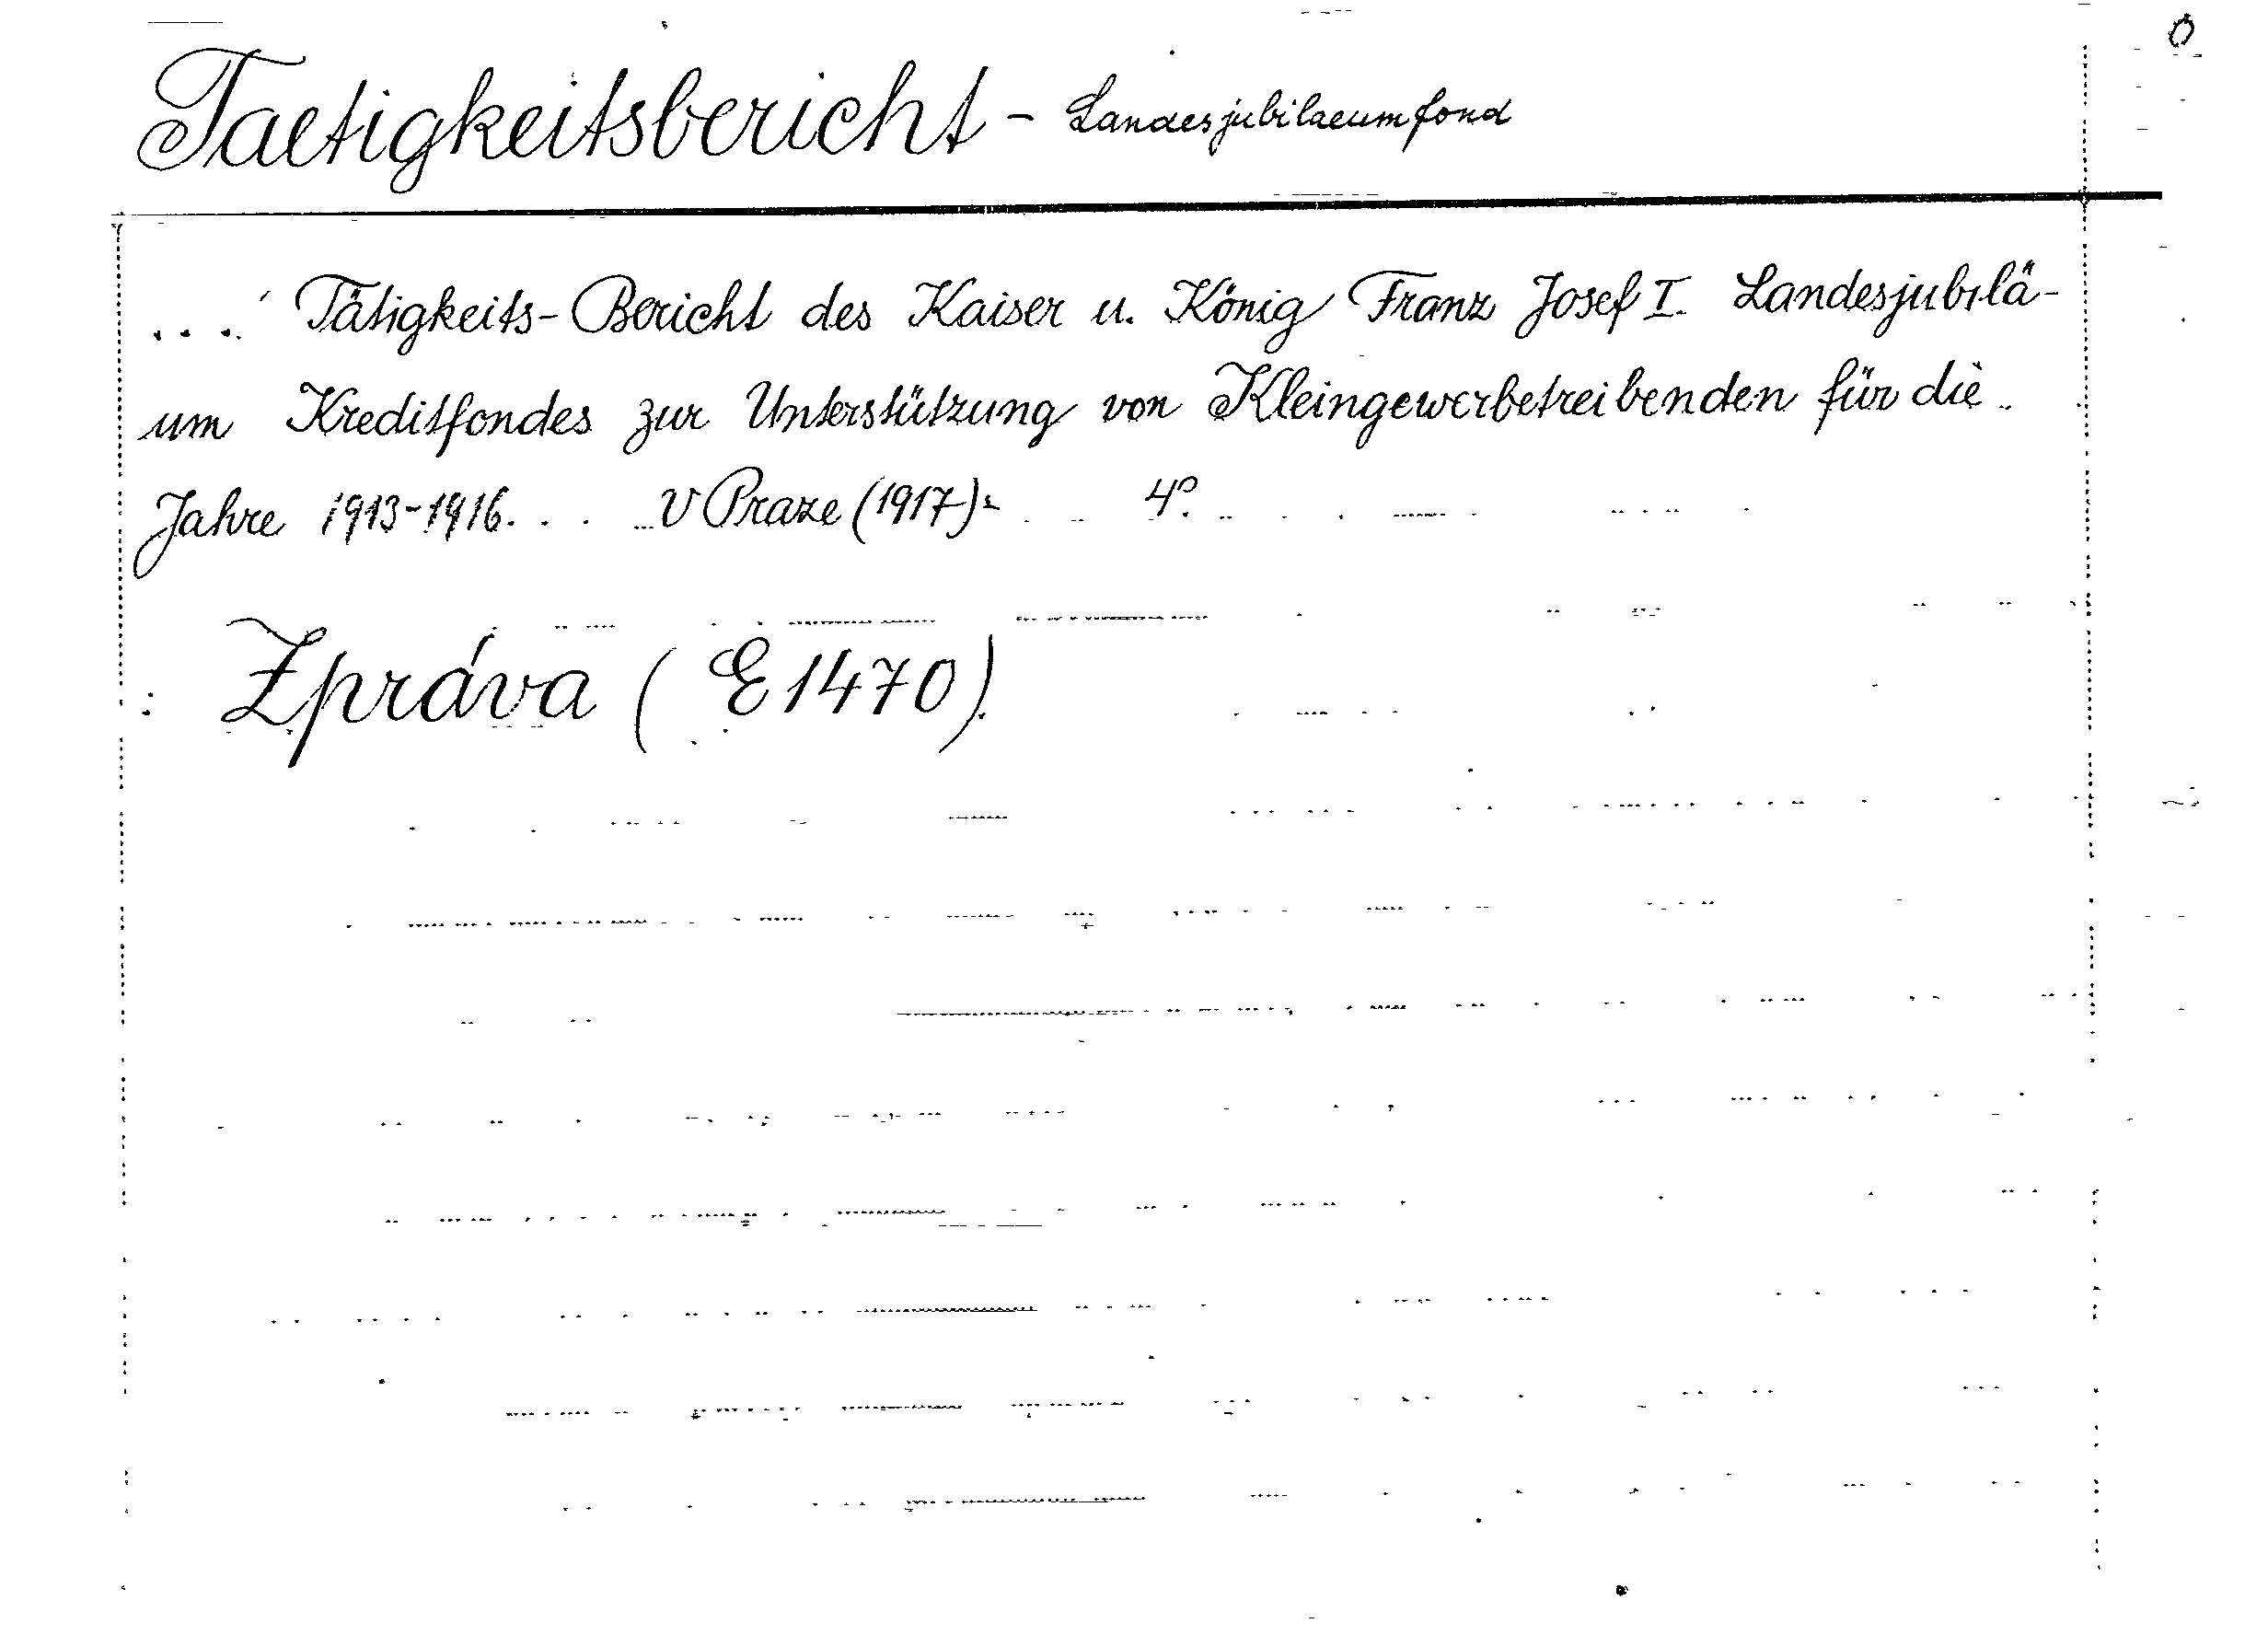 Taetigkeitsbericht - Landesjubilaeumfond
... Tätigkeits-Bericht des Kaiser u. König Franz Josef I. Landesjubilä-
um Kreditfondes zur Unterstützung von Kleingewerbetreibenden für die
Jahre 1913-1916. . . V Praze (1917). 4°.
: Zpráva (E1470).